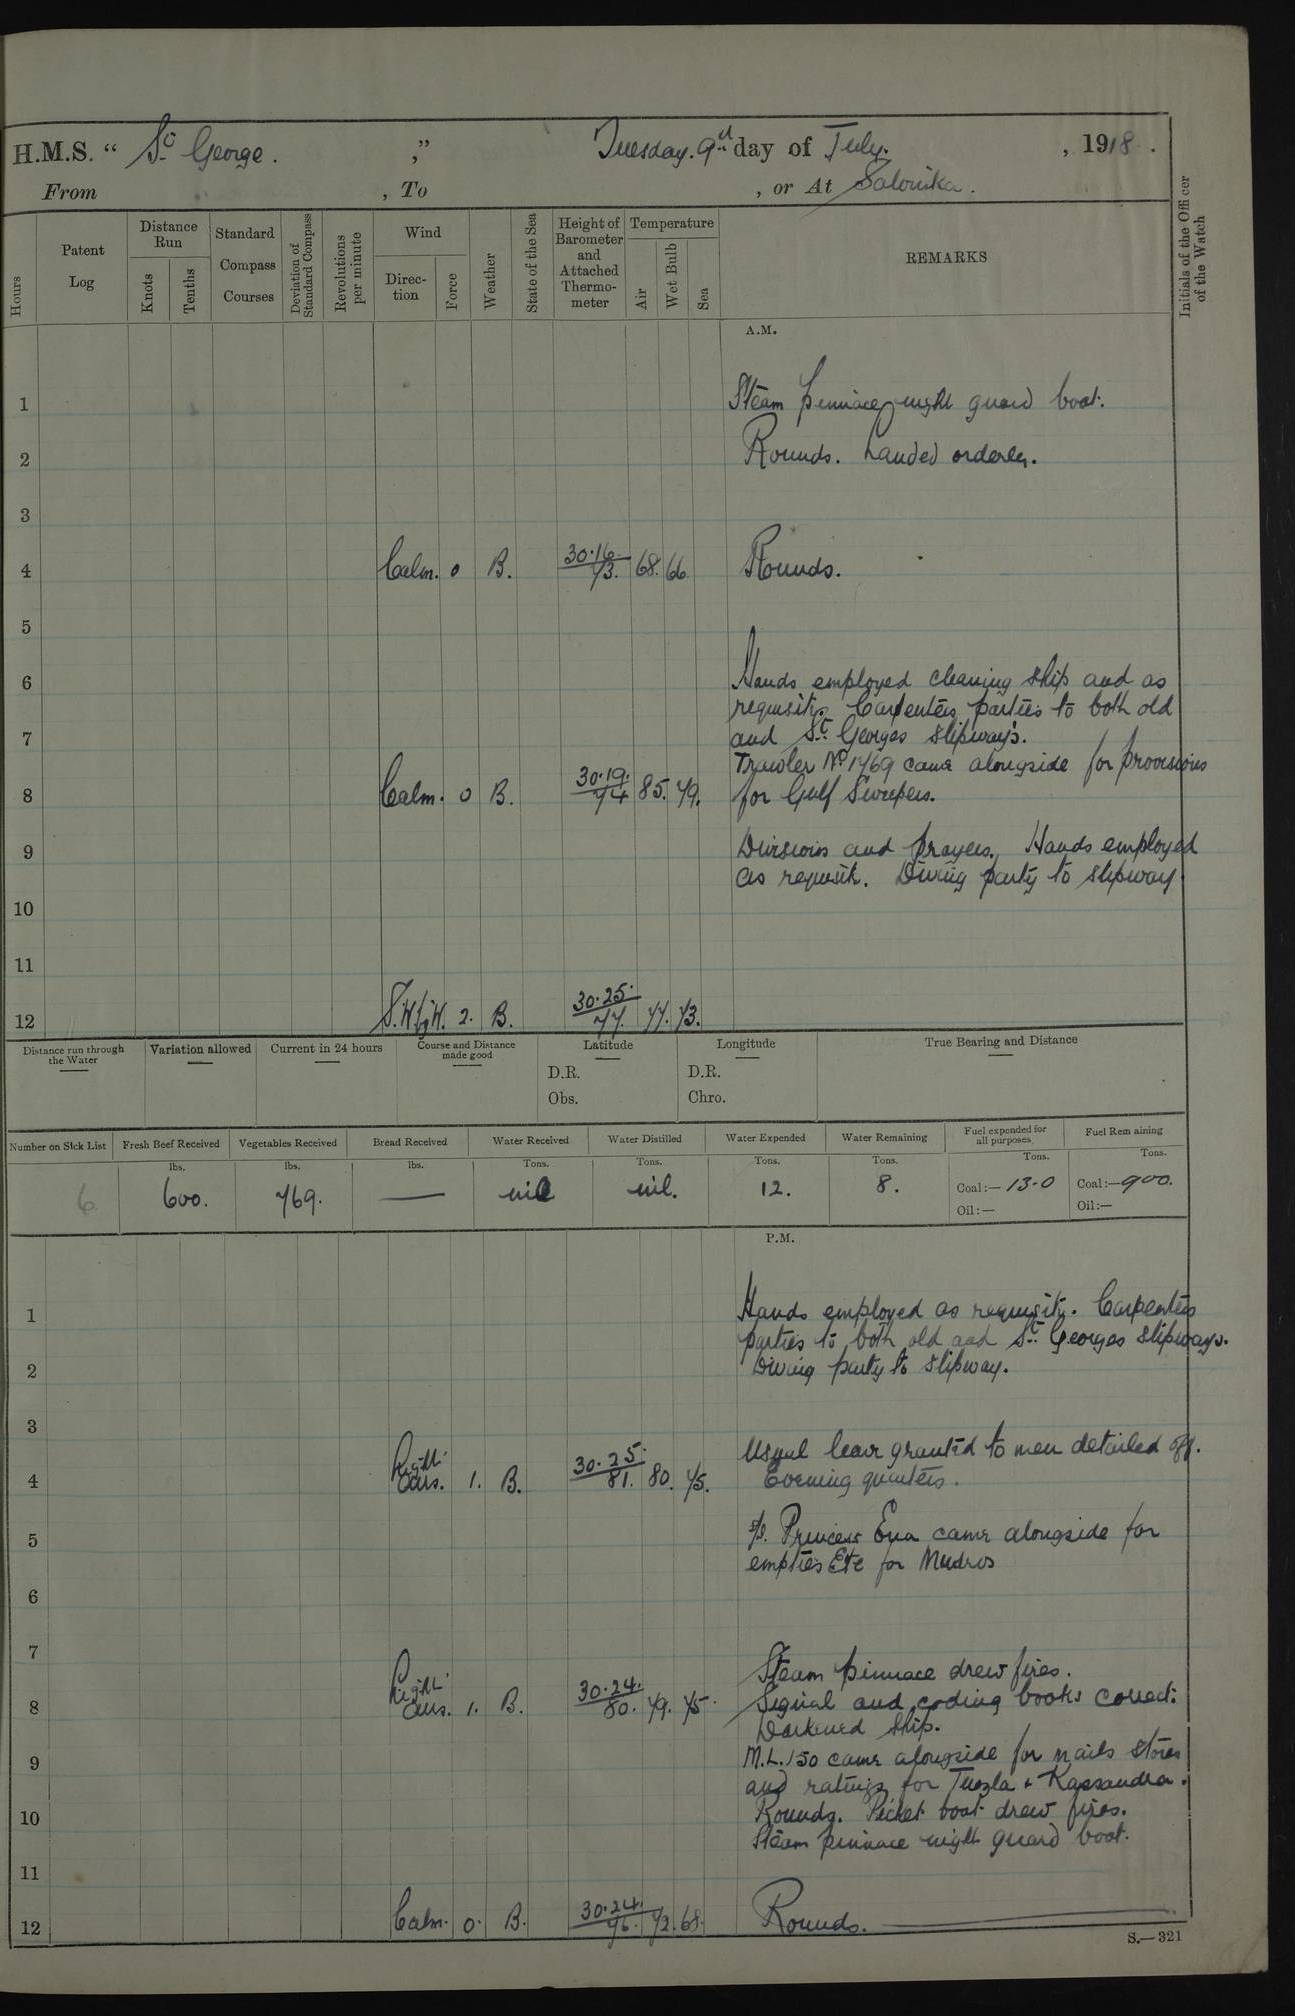 H.M.S. “ St George. ,” Tuesday. 9th day of July. , 1918.
From , To , or At Salonika.
Hours
Patent Log
Distance Run
Knots
Tenths
Standard Compass Courses
Deviation of Standard Compass
Revolutions per minute
Wind
Direc-tion
Force
Weather
State of the Sea
Height of Barometer and Attached Thermo-meter
Temperature
Air
Wet Bulb
Sea
REMARKS
Initials of the Officer of the Watch
A.M.
1 Steam pinnace night guard boat.
2 Rounds. Landed orderly.
3
4 Calm. 0 B. 30.16 73. 68. 66 Rounds.
5
6 Hands employed cleaning ship and as
requisite. Carpenters parties to both old
7 and St Georges slipways.
Trawler No 1769 came alongside for provisions
8 Calm. 0 B. 30.19. 74 85. 79. for Gulf Sweepers.
9 Divisions and prayers. Hands employed
as requisite. Diving party to slipway.
10
11
12 S.W.byW. 2. B. 30.25. 77. 77. 73.
Distance run through the Water
Variation allowed
Current in 24 hours
Course and Distance made good
Latitude
D.R.
Obs.
Longitude
D.R.
Chro.
True Bearing and Distance
Number on Sick List Fresh Beef Received Vegetables Received Bread Received Water Received Water Distilled Water Expended Water Remaining Fuel expended for all purposes Fuel Remaining
lbs. lbs. lbs. Tons. Tons. Tons. Tons. Tons. Tons.
6 600. 769. — nil nil. 12. 8. Coal:—13.0 Coal:—900.
Oil:— Oil:—
P.M.
1 Hands employed as requisite. Carpenters
parties to both old and St Georges slipways.
2 Diving party to slipway.
3
Usual leave granted to men detailed off.
4 Light airs. 1. B. 30.25. 81. 80. 75. Evening quarters.
5 s/s. Princess Ena came alongside for
empties Etc for Mudros
6
7
Steam pinnace drew fires.
8 Light airs. 1. B. 30.24. 80. 79. 75. Signal and coding books correct.
Darkened ship.
9 M.L. 150 came alongside for mails stores
and ratings for Tuzla & Kassandra.
10 Rounds. Picket boat drew fires.
Steam pinnace night guard boat.
11
12 Calm. 0. B. 30.24. 76. 72. 68. Rounds.
S.—321